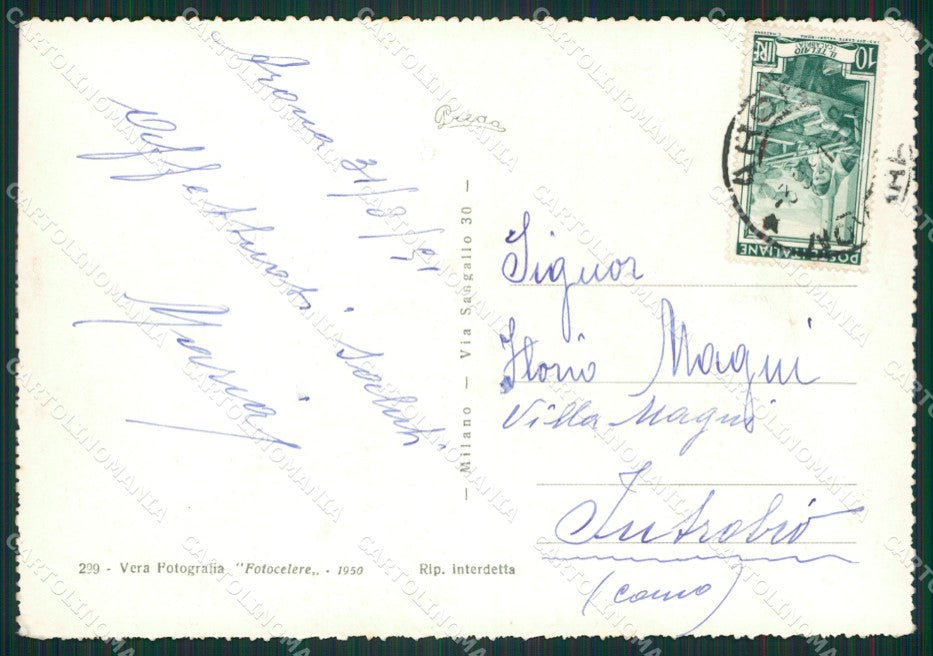 Arona 31/8/51
Affettuosi saluti
Maria
Breda
10 LIRE
IL TELAIO
(CALABRIA)
POSTE ITALIANE
ARONA
Signor
Ilorio Magni
Villa Magni
Introbio
(como)
— Milano — Via Sangallo 30 —
299 - Vera Fotografia "Fotocelere„ - 1950
Rip. interdetta
CARTOLINOMANIA